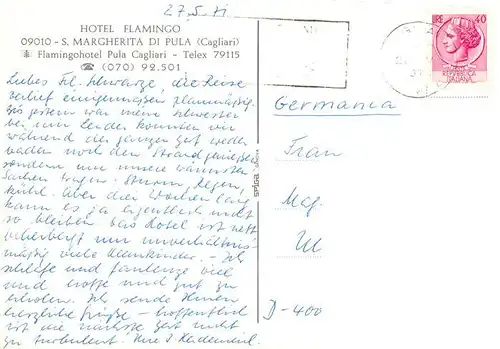 27.5.71
HOTEL FLAMINGO
09010 - S. MARGHERITA DI PULA (Cagliari)
Flamingohotel Pula Cagliari - Telex 79115
☎ (070) 92.501
Liebes Frl. Schwarze, die Reise
verlief einigermaßen planmäßig.
Bis gestern war meine Schwester
bei mir. Leider konnten wir
während der ganzen Zeit weder
baden noch den Strand genießen
sondern nur unsere wärmsten
Sachen tragen. Sturm, Regen,
kühl. Aber drei Wochen lang
kann es ja eigentlich nicht
so bleiben. Das Hotel ist nett
beherbergt nur unverhältnis-
mäßig viele Kleinkinder. - Ich
schlafe und faulenze viel
und hoffe mich gut zu
erholen. Ich sende Ihnen
herzliche Grüße - hoffentlich
ist die nächste Zeit nicht
zu turbulent. Ihre
RE 40
REPUBBLICA
ITALIANA
Germania
Frau
Mag.
D-400